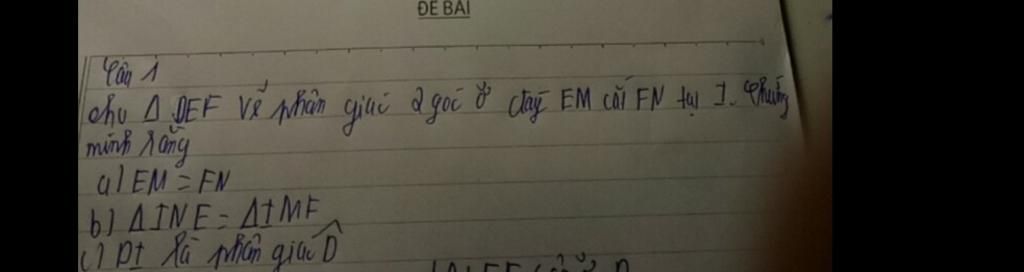 ĐỀ BÀI
Câu 1
cho Δ DEF Vẽ phân giác 2 góc ở đáy EM cắt FN tại I. Chứng
minh rằng
a) EM = FN
b) Δ INE = Δ IMF
c) DI là phân giác D̂